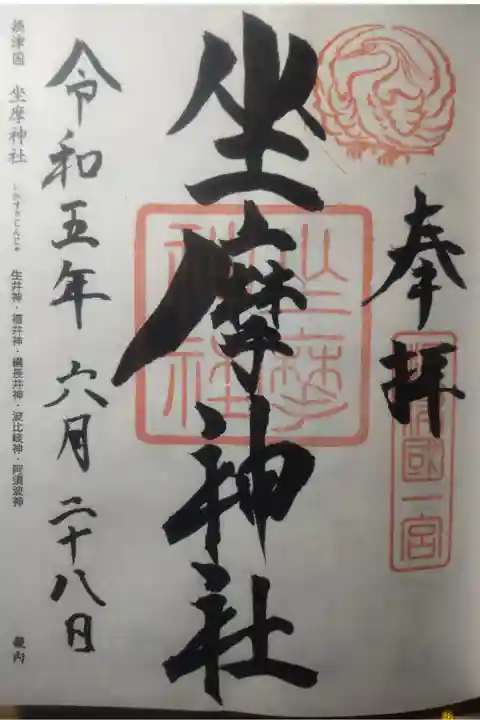 奉拝
摂津國一宮
坐摩神社
坐摩神社
令和五年 六月二十八日
摂津国 坐摩神社 いかすりじんじゃ 生井神・福井神・綱長井神・波比岐神・阿須波神